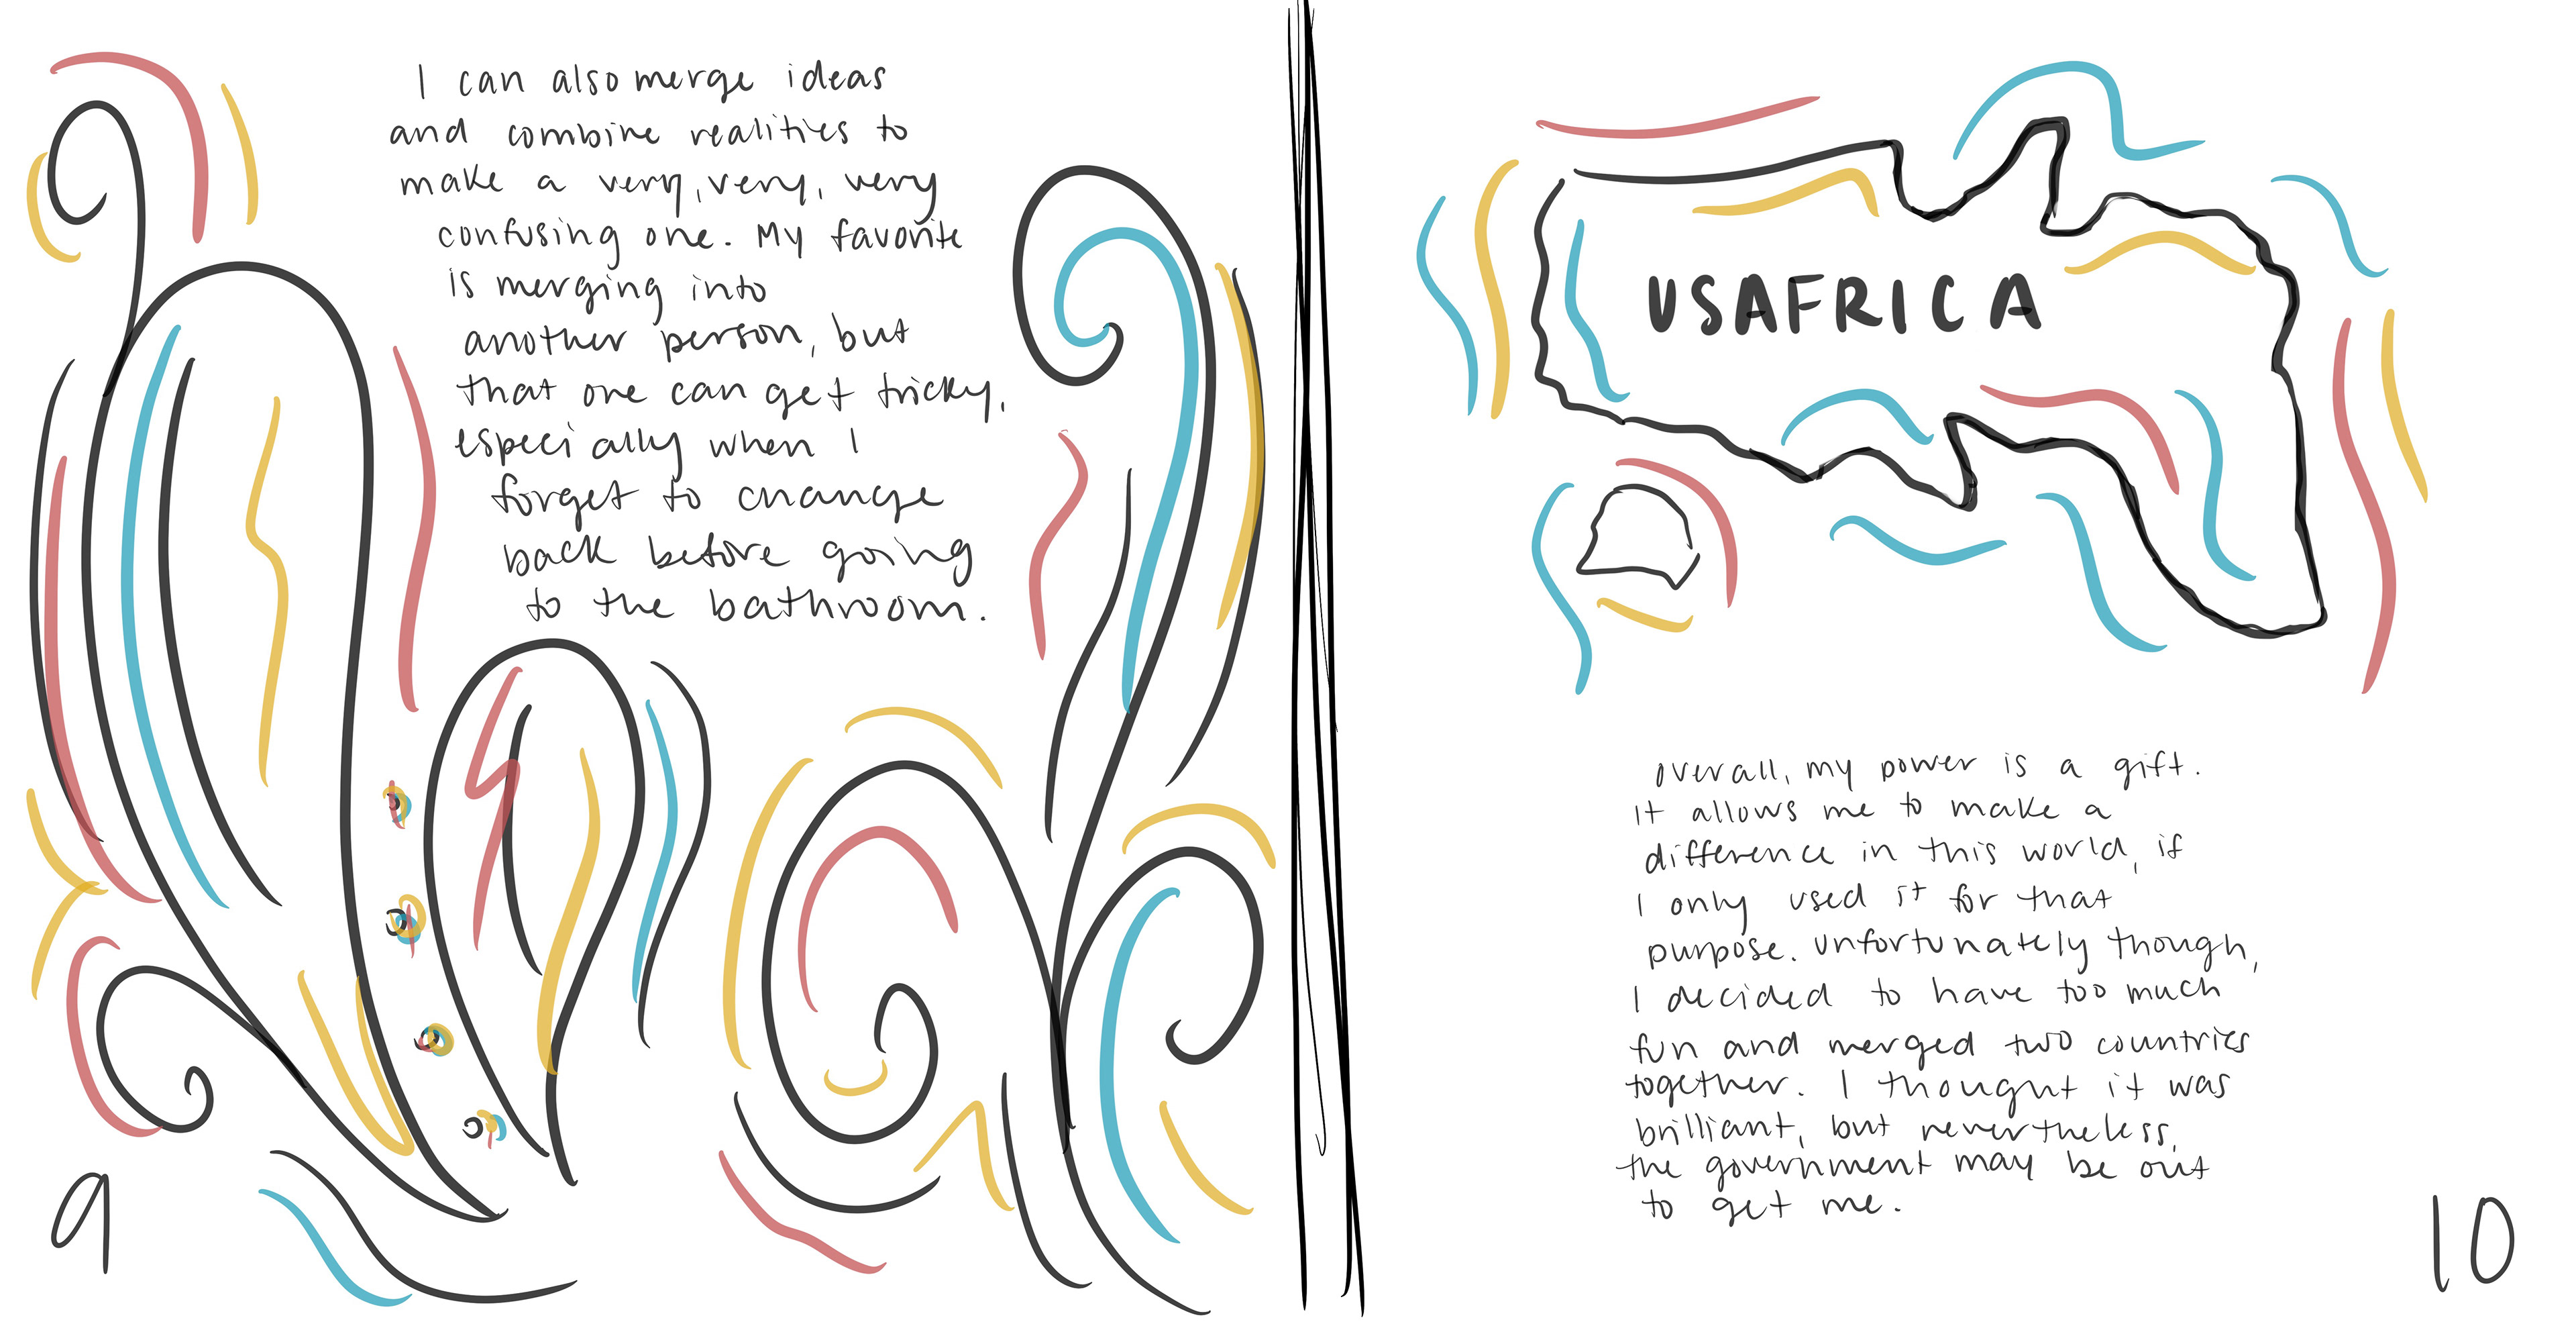 I can also merge ideas
and combine realities to
make a very, very, very
confusing one. My favorite
is merging into
another person, but
that one can get tricky,
especially when I
forget to change
back before going
to the bathroom.
9
USAFRICA
overall, my power is a gift.
It allows me to make a
difference in this world, if
I only used it for that
purpose. Unfortunately though,
I decided to have too much
fun and merged two countries
together. I thought it was
brilliant, but nevertheless,
the government may be out
to get me.
10